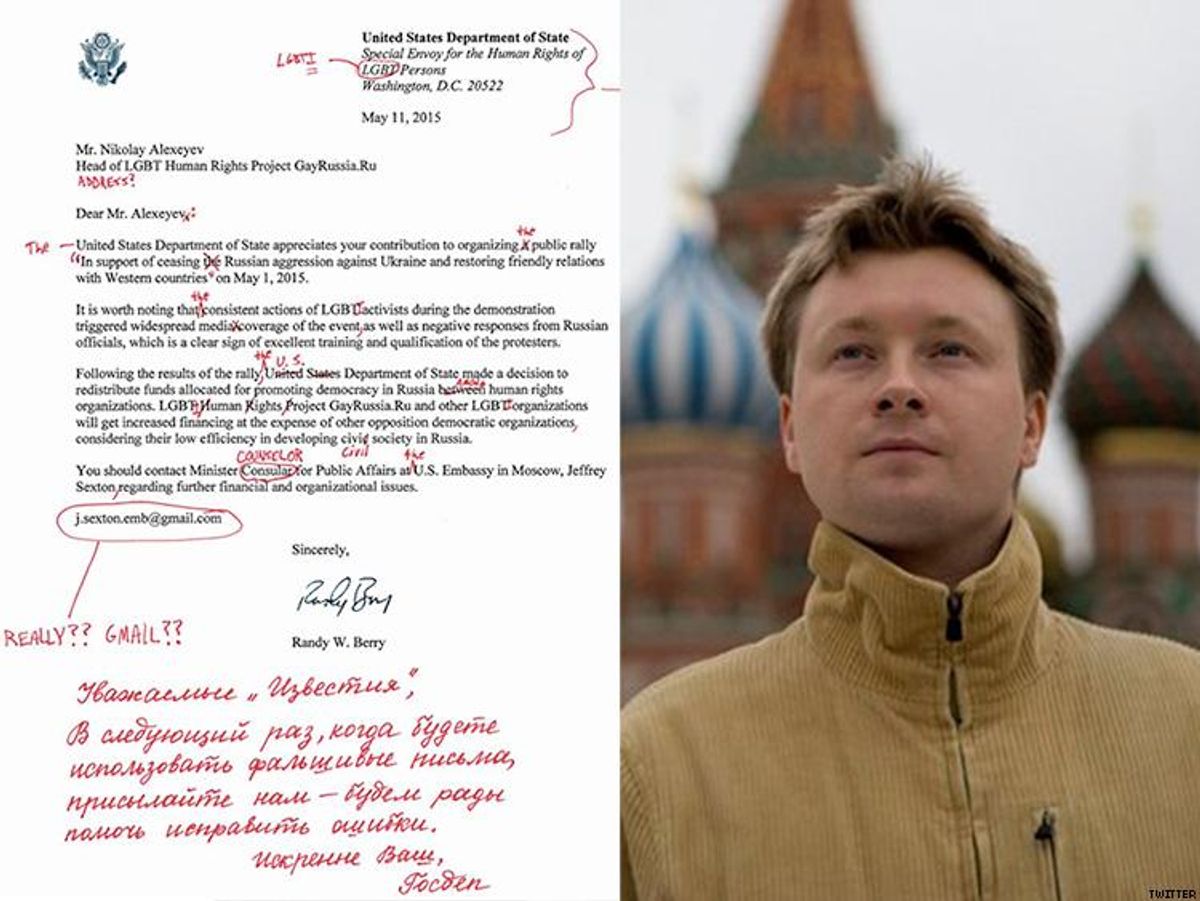 United States Department of State
Special Envoy for the Human Rights of
LGBTI
LGBT Persons
Washington, D.C. 20522
May 11, 2015
Mr. Nikolay Alexeyev
Head of LGBT Human Rights Project GayRussia.Ru
ADDRESS?
Dear Mr. Alexeyev,:
the
The United States Department of State appreciates your contribution to organizing a public rally
"In support of ceasing the Russian aggression against Ukraine and restoring friendly relations
with Western countries" on May 1, 2015.
the
It is worth noting that consistent actions of LGBT activists during the demonstration
triggered widespread media coverage of the event, as well as negative responses from Russian
officials, which is a clear sign of excellent training and qualification of the protesters.
the U.S.
Following the results of the rally, United States Department of State made a decision to
redistribute funds allocated for promoting democracy in Russia between human rights
organizations. LGBT Human Rights Project GayRussia.Ru and other LGBT organizations
will get increased financing at the expense of other opposition democratic organizations,
considering their low efficiency in developing civic society in Russia.
civil
COUNSELOR the
You should contact Minister Consular for Public Affairs at U.S. Embassy in Moscow, Jeffrey
Sexton, regarding further financial and organizational issues.
j.sexton.emb@gmail.com
Sincerely,
Randy Berry
REALLY?? GMAIL??
Randy W. Berry
Уважаемые „Известия",
В следующий раз, когда будете
использовать фальшивые письма,
присылайте нам — будем рады
помочь исправить ошибки.
Искренне Ваш,
Госдеп
TWITTER